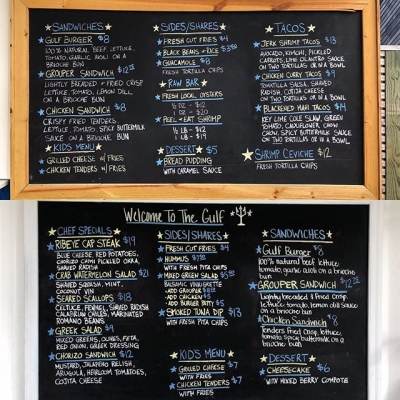 SANDWICHES
GULF BURGER $8
100% NATURAL BEEF, LETTUCE,
TOMATO, GARLIC AIOLI ON A
BRIOCHE BUN
GROUPER SANDWICH $12
LIGHTLY BREADED & FRIED CRISP
LETTUCE, TOMATO, LEMON DILL
ON A BRIOCHE BUN
CHICKEN SANDWICH $8
CRISPY FRIED TENDERS,
LETTUCE, TOMATO, SPICY BUTTERMILK
SAUCE ON A BRIOCHE BUN
KIDS MENU
GRILLED CHEESE W/ FRIES
CHICKEN TENDERS W/ FRIES
SIDES/SHARES
FRESH CUT FRIES $4
BLACK BEANS + RICE $3.50
GUACAMOLE $8
FRESH TORTILLA CHIPS
RAW BAR
FRESH LOCAL OYSTERS
1/2 DZ - $12
1 DZ - $20
PEEL + EAT SHRIMP
1/2 LB - $12
1 LB - $19
DESSERT $5
BREAD PUDDING
WITH CARAMEL SAUCE
TACOS
JERK SHRIMP TACOS $13
AVOCADO, KIMCHI, PICKLED
CARROTS, LIME CILANTRO SAUCE
ON TWO TORTILLAS OR IN A BOWL
CHICKEN CURRY TACOS $9
TOMATILLO SALSA, SHAVED
RADISH, COTIJA CHEESE
ON TWO TORTILLAS OR IN A BOWL
BLACKENED MAHI TACOS $14
KEY LIME COLE SLAW, GREEN
TOMATO, CAULIFLOWER CHOW
CHOW, SPICY BUTTERMILK SAUCE
ON TWO TORTILLAS OR IN A BOWL
SHRIMP CEVICHE $12
FRESH TORTILLA CHIPS
Welcome To The Gulf
CHEF SPECIALS
RIBEYE CAP STEAK $19
BLUE CHEESE, RED POTATOES,
CHORIZO CHIMI PICKLED OKRA,
SHAVED RADISH
CRAB WATERMELON SALAD $21
SHAVED SQUASH, MINT,
COCONUT VIN
SEARED SCALLOPS $18
CELTUCE, FENNEL, SHAVED RADISH
CALABRIAN CHILES, MARINATED
ROMANO BEANS
GREEK SALAD $9
MIXED GREENS, OLIVES, FETA,
RED ONION, GREEK DRESSING
CHORIZO SANDWICH $12
MUSTARD, JALAPEÑO RELISH,
ARUGULA, HEIRLOOM TOMATOES,
COJITA CHEESE
SIDES/SHARES
FRESH CUT FRIES $4
HUMMUS
WITH FRESH PITA CHIPS
MIXED GREEN SALAD
BALSAMIC VINAIGRETTE
- ADD GROUPER $8
- ADD CHICKEN $5
- ADD BURGER PATTY $5
SMOKED TUNA DIP $13
WITH FRESH PITA CHIPS
KIDS MENU
GRILLED CHEESE $7
WITH FRIES
CHICKEN TENDERS $7
WITH FRIES
SANDWICHES
Gulf Burger $8
100% natural beef, lettuce
tomato, garlic aioli on a brioche
bun
GROUPER SANDWICH $12
Lightly breaded & fried Crisp
lettuce, tomato, lemon dill Sauce
on a brioche bun
Chicken Sandwich $8
Tenders Fried Crisp, lettuce
tomato, Spicy buttermilk Sauce
on a brioche bun
DESSERT
CHEESECAKE $6
WITH MIXED BERRY COMPOTE